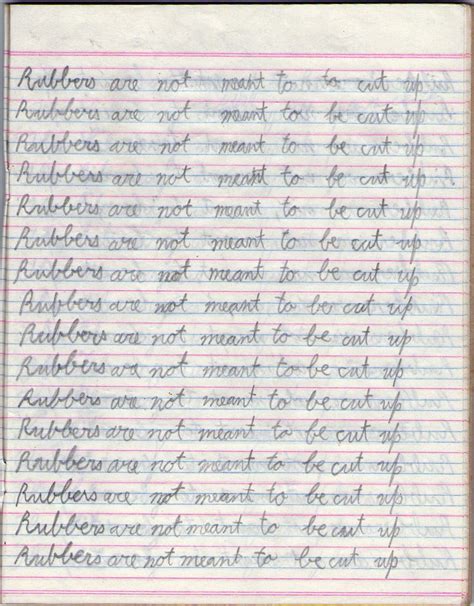 Rubbers are not meant to to cut up
Rubbers are not meant to be cut up
Rubbers are not meant to be cut up
Rubbers are not meant to be cut up
Rubbers are not meant to be cut up
Rubbers are not meant to be cut up
Rubbers are not meant to be cut up
Rubbers are not meant to be cut up
Rubbers are not meant to be cut up
Rubbers are not meant to be cut up
Rubbers are not meant to be cut up
Rubbers are not meant to be cut up
Rubbers are not meant to be cut up
Rubbers are not meant to be cut up
Rubbers are not meant to be cut up
Rubbers are not meant to be cut up